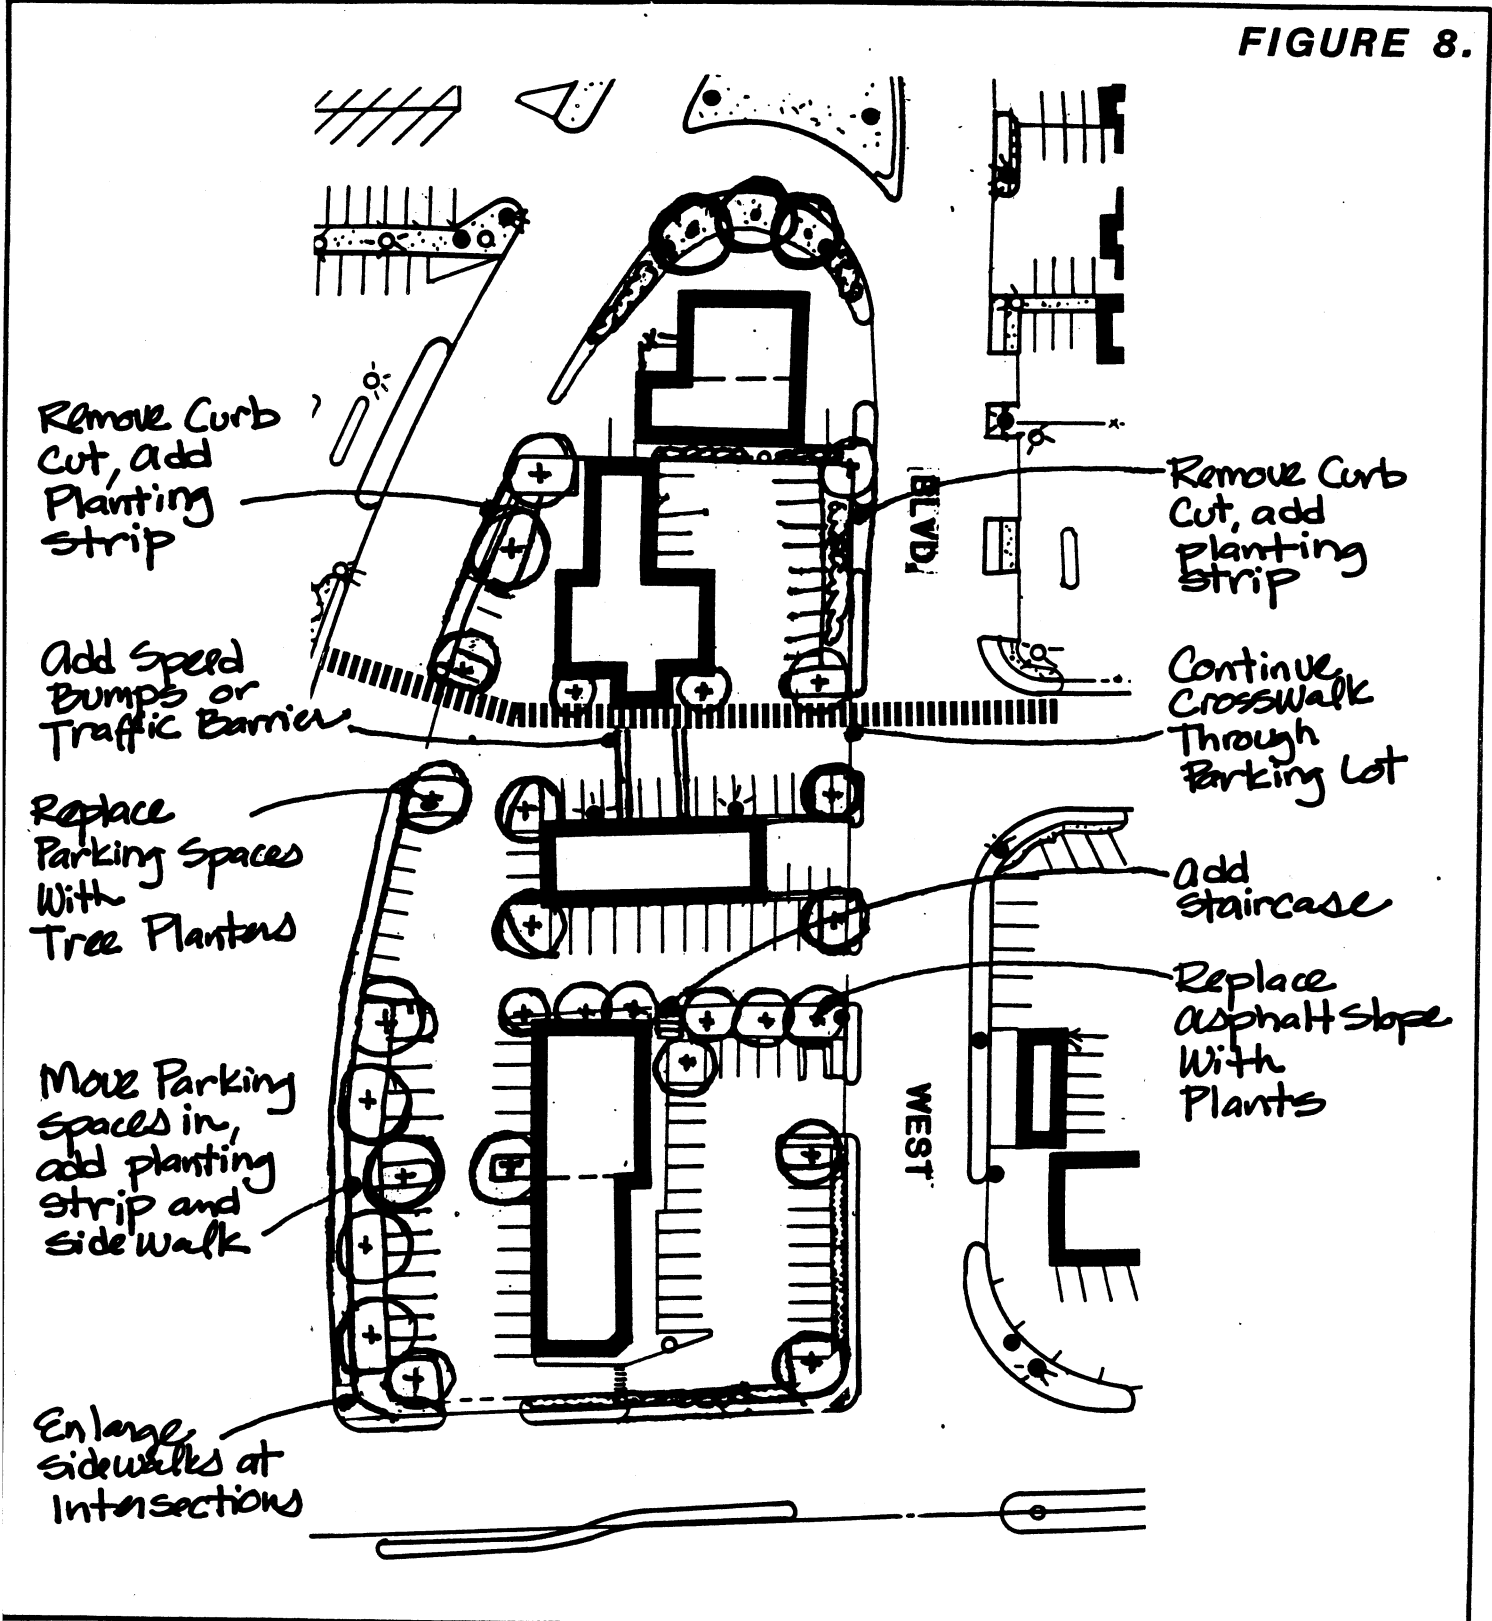 FIGURE 8.
Remove Curb
Cut, add
Planting
Strip
Add Speed
Bumps or
Traffic Barrier
Replace
Parking Spaces
With
Tree Planters
Move Parking
Spaces in,
add planting
Strip and
Sidewalk
Enlarge
Sidewalks at
Intersections
BLVD.
WEST
Remove Curb
Cut, add
planting
Strip
Continue
Crosswalk
Through
Parking Lot
Add
Staircase
Replace
Asphalt Slope
With
Plants